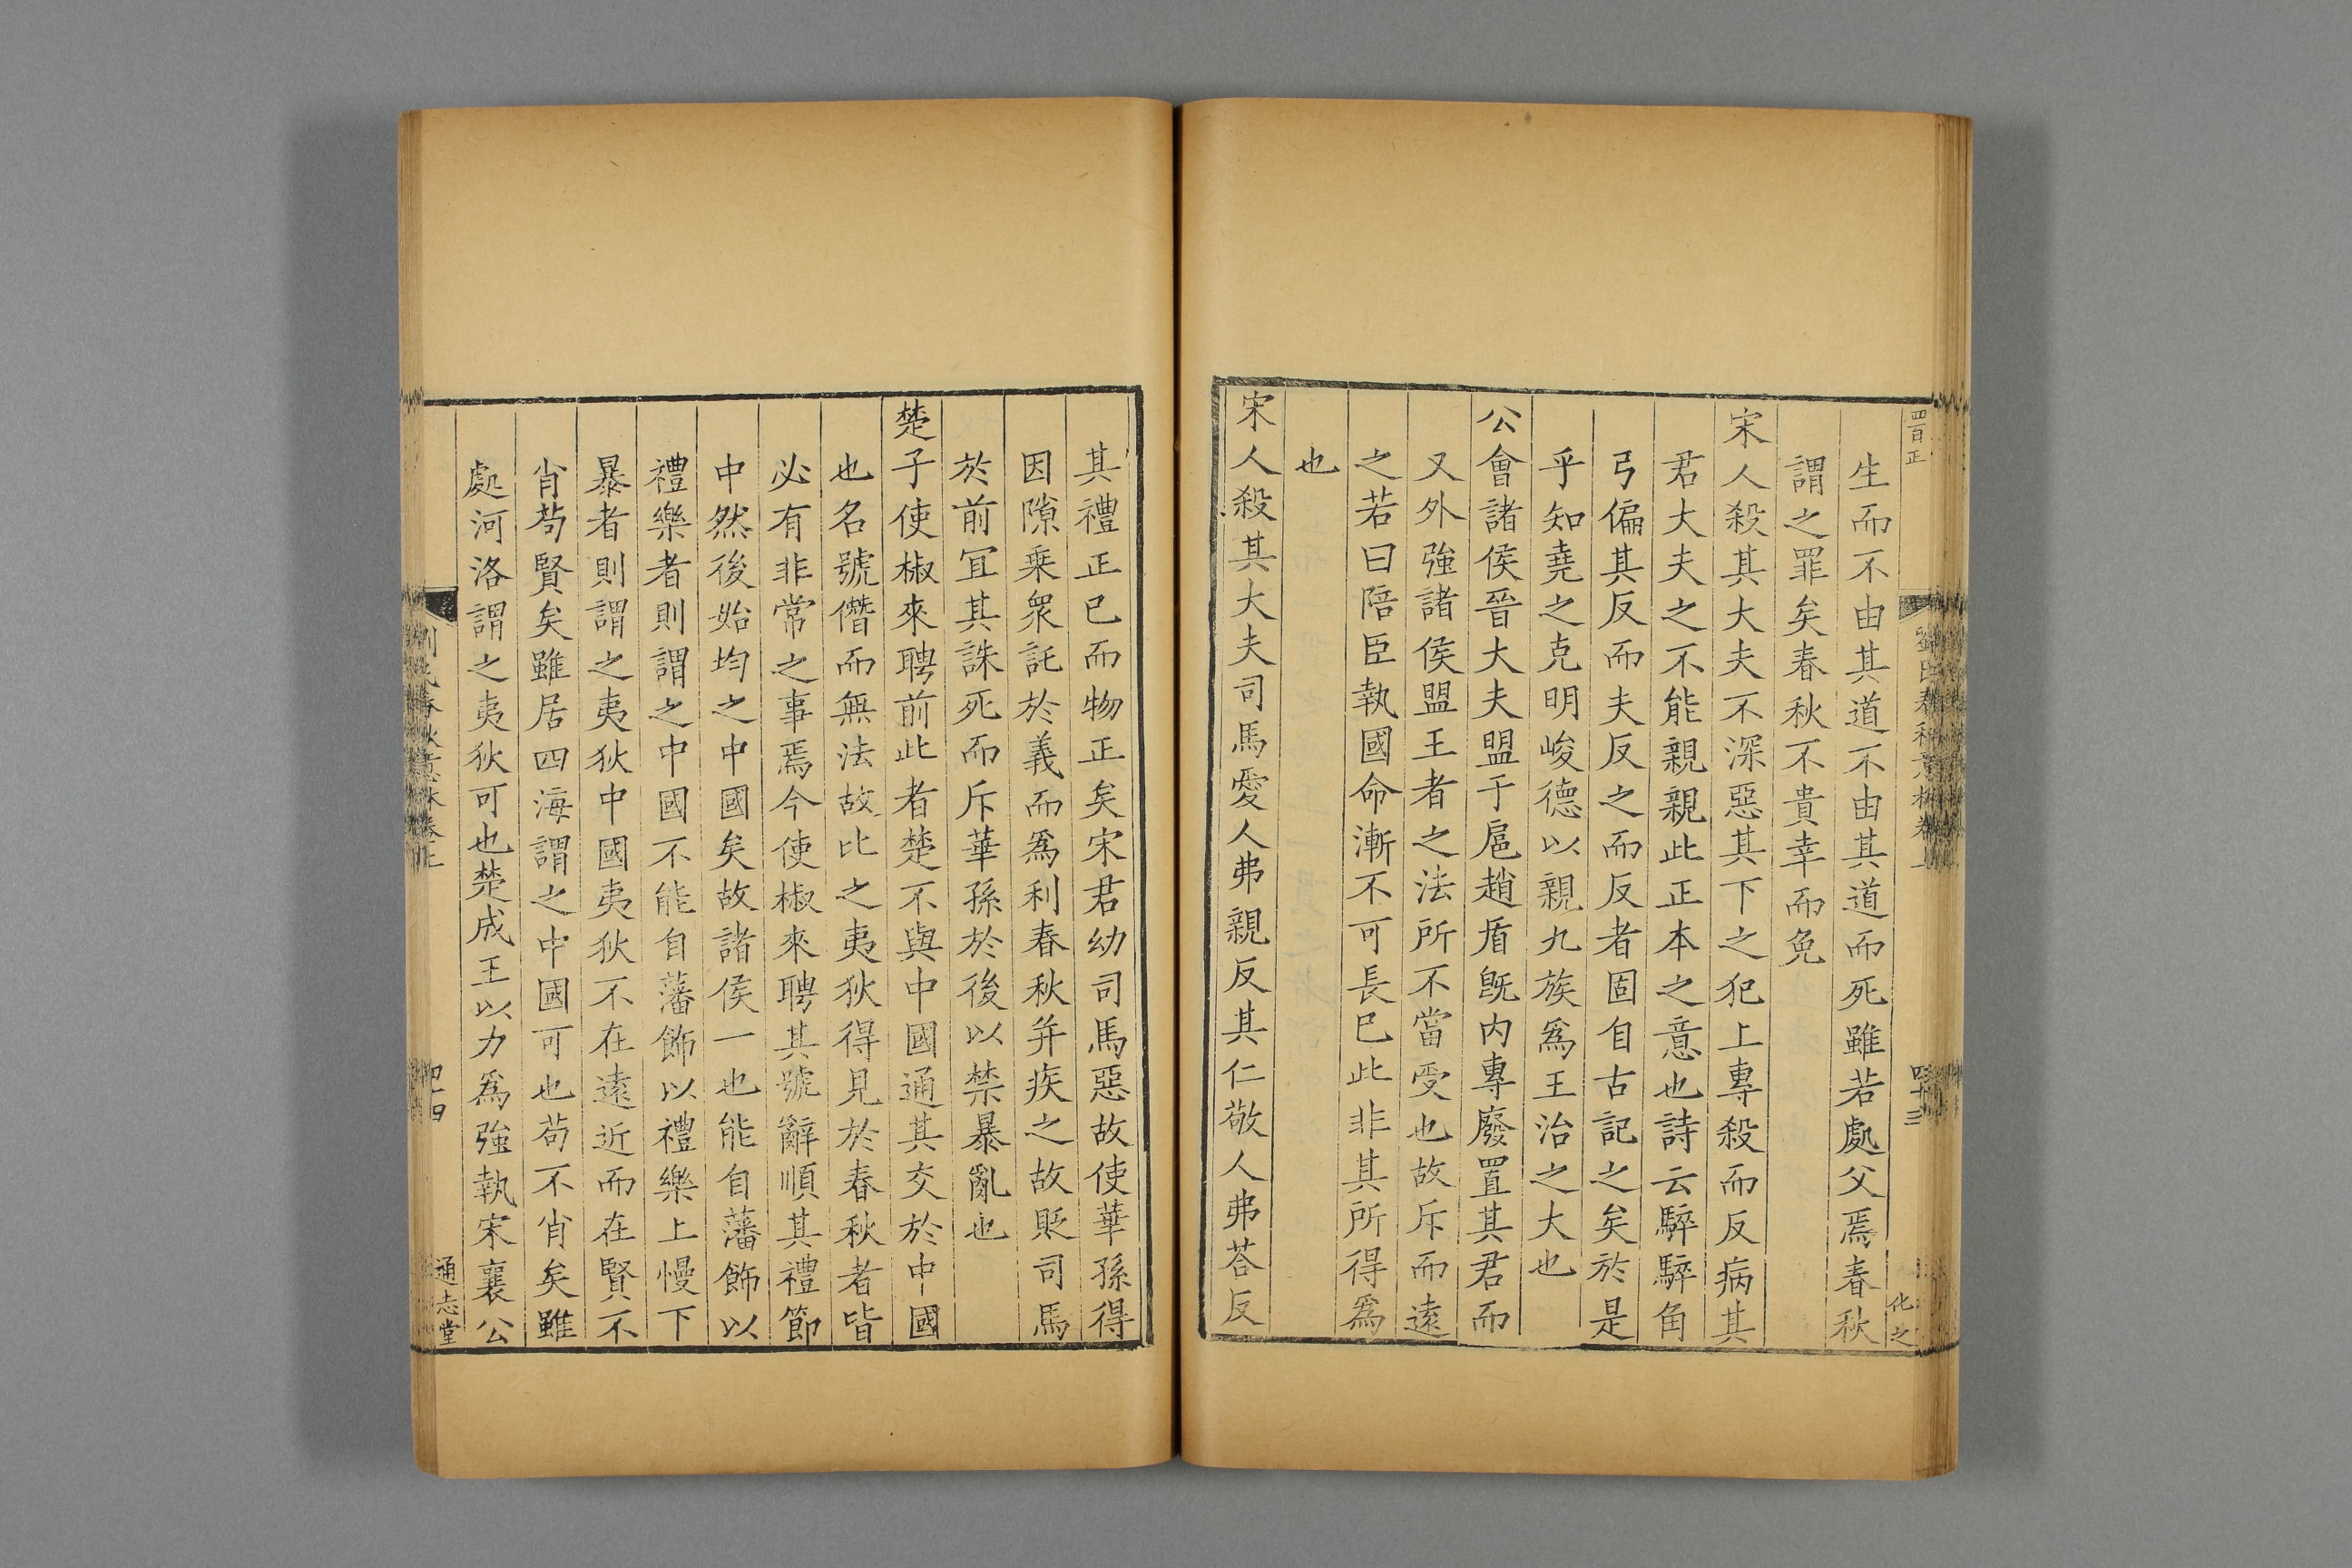 生而不由其道不由其道而死雖若處父焉春秋
謂之罪矣春秋不貴幸而免
宋人殺其大夫不深惡其下之犯上專殺而反病其
君大夫之不能親親此正本之意也詩云騂騂角
弓偏其反而夫反之而反者固自古記之矣於是
乎知堯之克明峻德以親九族爲王治之大也
公會諸侯晉大夫盟于扈趙盾旣内專廢置其君而
又外強諸侯盟王者之法所不當受也故斥而遠
之若曰陪臣執國命漸不可長巳此非其所得爲
也
宋人殺其大夫司馬愛人弗親反其仁敬人弗荅反
其禮正已而物正矣宋君幼司馬惡故使華孫得
因隙乗衆託於義而爲利春秋并疾之故貶司馬
於前冝其誅死而斥華孫於後以禁暴亂也
楚子使椒來聘前此者楚不與中國通其交於中國
也名號僭而無法故比之夷狄得見於春秋者皆
必有非常之事焉今使椒來聘其號辭順其禮節
中然後始均之中國矣故諸侯一也能自藩飾以
禮樂者則謂之中國不能自藩飾以禮樂上慢下
暴者則謂之夷狄中國夷狄不在遠近而在賢不
肖苟賢矣雖居四海謂之中國可也苟不肖矣雖
處河洛謂之夷狄可也楚成王以力爲強執宋襄公
劉氏春秋意林卷上
四十四
通志堂